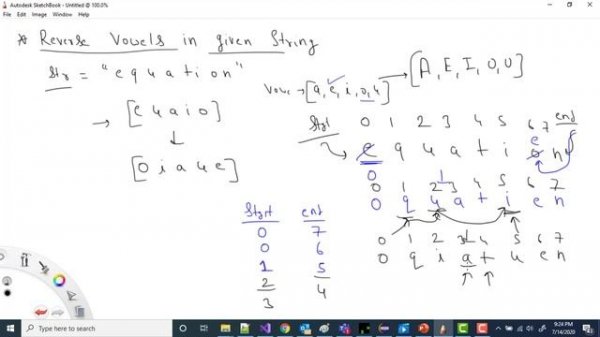 Autodesk SketchBook - Untitled @ 100.0%
File Edit Image Window Help
* Reverse Vowels in given String
Str = "equation"
Vowe → [a, e, i, o, u] → [A, E, I, O, U]
→ [e u a i o]
↓
[o i a u e]
Start 0 1 2 3 4 5 6 7 end
e
e q u a t i o n
0
0 1 2 3 4 5 6 7
o q u a t i e n
0 1 2 3 4 5 6 7
o q i a t u e n
Start end
0 7
0 6
1 5
2 4
3
Type here to search
9:24 PM
7/14/2020